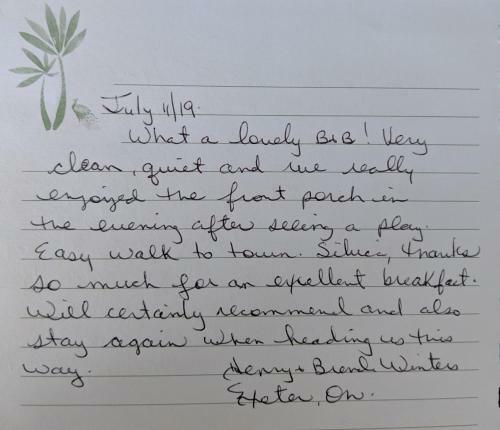 July 11/19.
What a lovely B&B! Very
clean, quiet and we really
enjoyed the front porch in
the evening after seeing a play.
Easy walk to town. Silvia, thanks
so much for an excellent breakfast.
Will certainly recommend and also
stay again when heading us this
way. Henry + Brend Winters
Exeter, On.